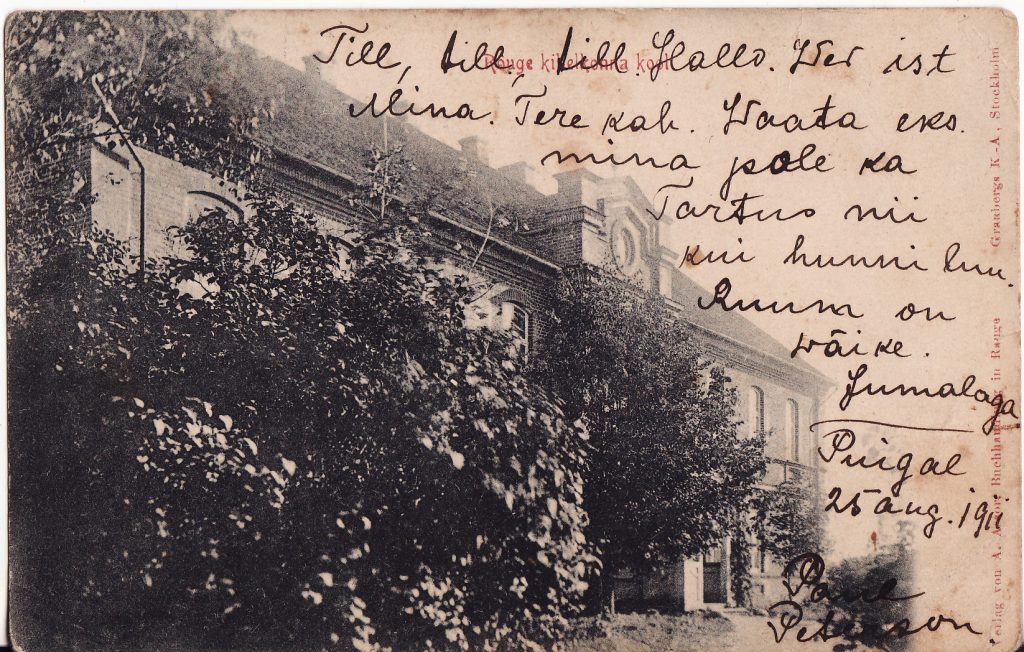 Till, till, till. Hallo. Wer ist
Rõuge kihelkonna kool
Mina. Tere kah. Waata eks
mina pole ka
Tartus nii
kui hunni luu.
Ruum on
wäike.
Jumalaga
Puigal
25 aug. 1911
Paul
Peterson.
Verlag von A. Buchhandlung in Rauge Granbergs K.-A., Stockholm